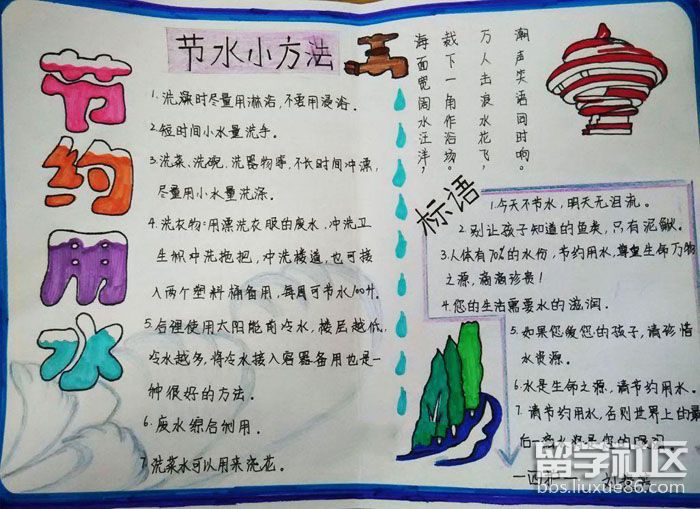 节约用水
节水小方法
1. 洗澡时尽量用淋浴，不要用浸浴。
2. 短时间小水量洗手。
3. 洗菜、洗碗、洗器物等，不长时间冲漂，
尽量用小水量洗涤。
4. 洗衣物：用漂洗衣服的废水，冲洗卫
生帜冲洗拖把，冲洗楼道，也可接
入两个塑料桶备用，每周可节水100升。
5. 合理使用太阳能前冷水，楼层越低，
冷水越多，将冷水接入容器备用也是一
种很好的方法。
6. 废水综合利用。
7. 洗菜水可以用来浇花。
海面宽阔水汪汪，
裁下一角作浴场。
万人击浪水花飞，
潮声笑语同时响。
标语
1. 今天不节水，明天无泪流。
2. 别让孩子知道的鱼类，只有泥鳅。
3. 人体有70%的水份，节约用水，尊重生命万物
之源，滴滴珍贵！
4. 您的生活需要水的滋润。
5. 如果您爱您的孩子，请珍惜
水资源。
6. 水是生命之源，请节约用水。
7. 请节约用水，否则世界上的最
后一滴水将是您的眼泪
留学社区
bbs.liuxue86.com